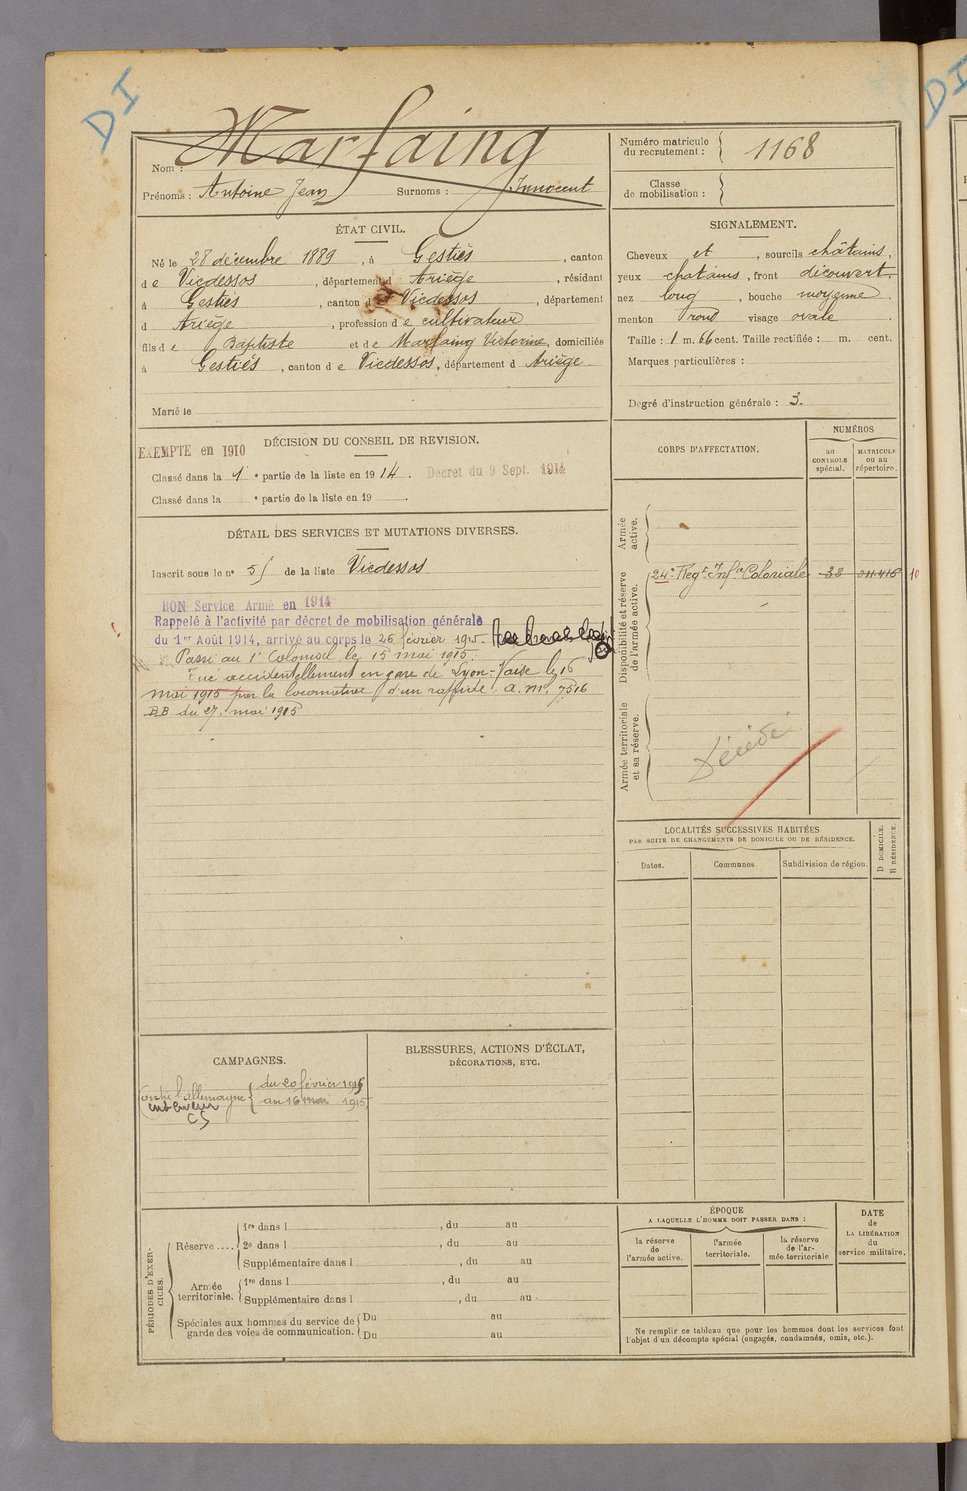 DI
DI
Marfaing
Nom :
Prénoms : Antoine Jean Surnoms : Innocent
Numéro matricule
du recrutement : 1168
Classe
de mobilisation :
ÉTAT CIVIL.
Né le 28 décembre 1889, à Gestiès, canton
de Vicdessos, département d Ariège, résidant
à Gestiès, canton d Vicdessos, département
d Ariège, profession de cultivateur
fils de Baptiste et de Marfaing Victorine, domiciliés
à Gestiès, canton de Vicdessos, département d Ariège.
Marié le
SIGNALEMENT.
Cheveux et, sourcils châtains,
yeux chatains, front découvert.
nez long, bouche moyenne.
menton rond visage ovale
Taille : 1 m. 66 cent. Taille rectifiée : m. cent.
Marques particulières :
Degré d'instruction générale : 3.
DÉCISION DU CONSEIL DE REVISION.
EXEMPTE en 1910
Classé dans la 1e partie de la liste en 1914. Décret du 9 Sept. 1914
Classé dans la e partie de la liste en 19 .
DÉTAIL DES SERVICES ET MUTATIONS DIVERSES.
Inscrit sous le n° 51 de la liste Vicdessos
BON Service Armé en 1914
Rappelé à l'activité par décret de mobilisation générale
du 1er Août 1914, arrivé au corps le 26 février 1915.
Passé au 1r Colonial le 15 mai 1915.
Tué accidentellement en gare de Lyon-Vaise le 16
mai 1915 par la locomotive d'un rapide. a. m. 7516
BB du 27 mai 1915
CORPS D'AFFECTATION.
NUMÉROS
au
CONTROLE
spécial.
MATRICULE
ou au
répertoire.
Armée
active.
Disponibilité et réserve
de l'armée active.
24e Regt Infie Coloniale 38 011.416 10
Armée territoriale
et sa réserve.
Décédé
LOCALITÉS SUCCESSIVES HABITÉES
PAR SUITE DE CHANGEMENTS DE DOMICILE OU DE RÉSIDENCE.
Dates.
Communes
Subdivision de région.
D DOMICILE.
R RÉSIDENCE.
CAMPAGNES.
Contre l'allemagne du 20 février 1915
au 16 mai 1915
intérieur
CS
BLESSURES, ACTIONS D'ÉCLAT,
DÉCORATIONS, ETC.
PÉRIODES D'EXER-
CICES.
Réserve ....
1re dans l , du au
2e dans l , du au
Supplémentaire dans l , du au
Armée
territoriale.
1re dans l , du au
Supplémentaire dans l , du au
Spéciales aux hommes du service de
garde des voies de communication.
Du au
Du au
ÉPOQUE
A LAQUELLE L'HOMME DOIT PASSER DANS :
la réserve
de
l'armée active.
l'armée
territoriale.
la réserve
de l'ar-
mée territoriale
DATE
de
LA LIBÉRATION
du
service militaire.
Ne remplir ce tableau que pour les hommes dont les services font
l'objet d'un décompte spécial (engagés, condamnés, omis, etc.).